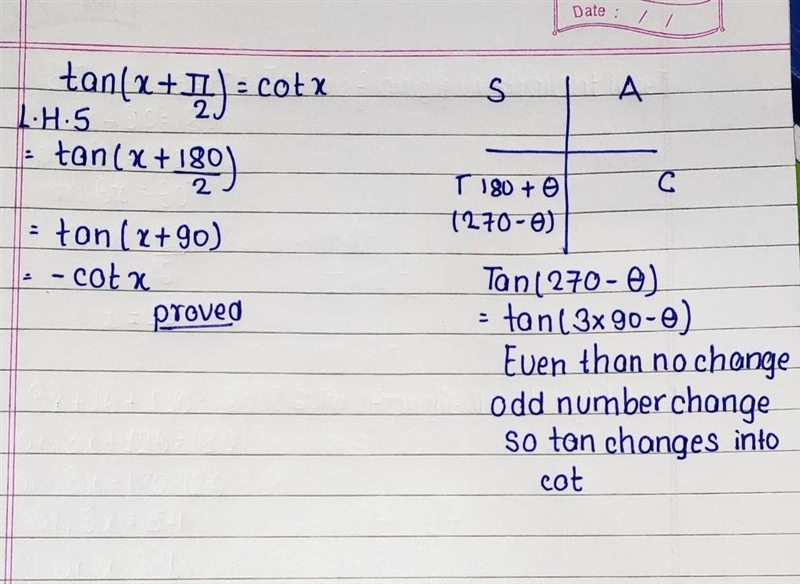 Date : / /
tan(x+π/2)=cotx
L.H.S
= tan(x+180/2)
= tan(x+90)
= -cotx
proved
S A
T 180+θ C
(270-θ)
Tan(270-θ)
= tan(3x90-θ)
Even than no change
odd number change
so tan changes into
cot